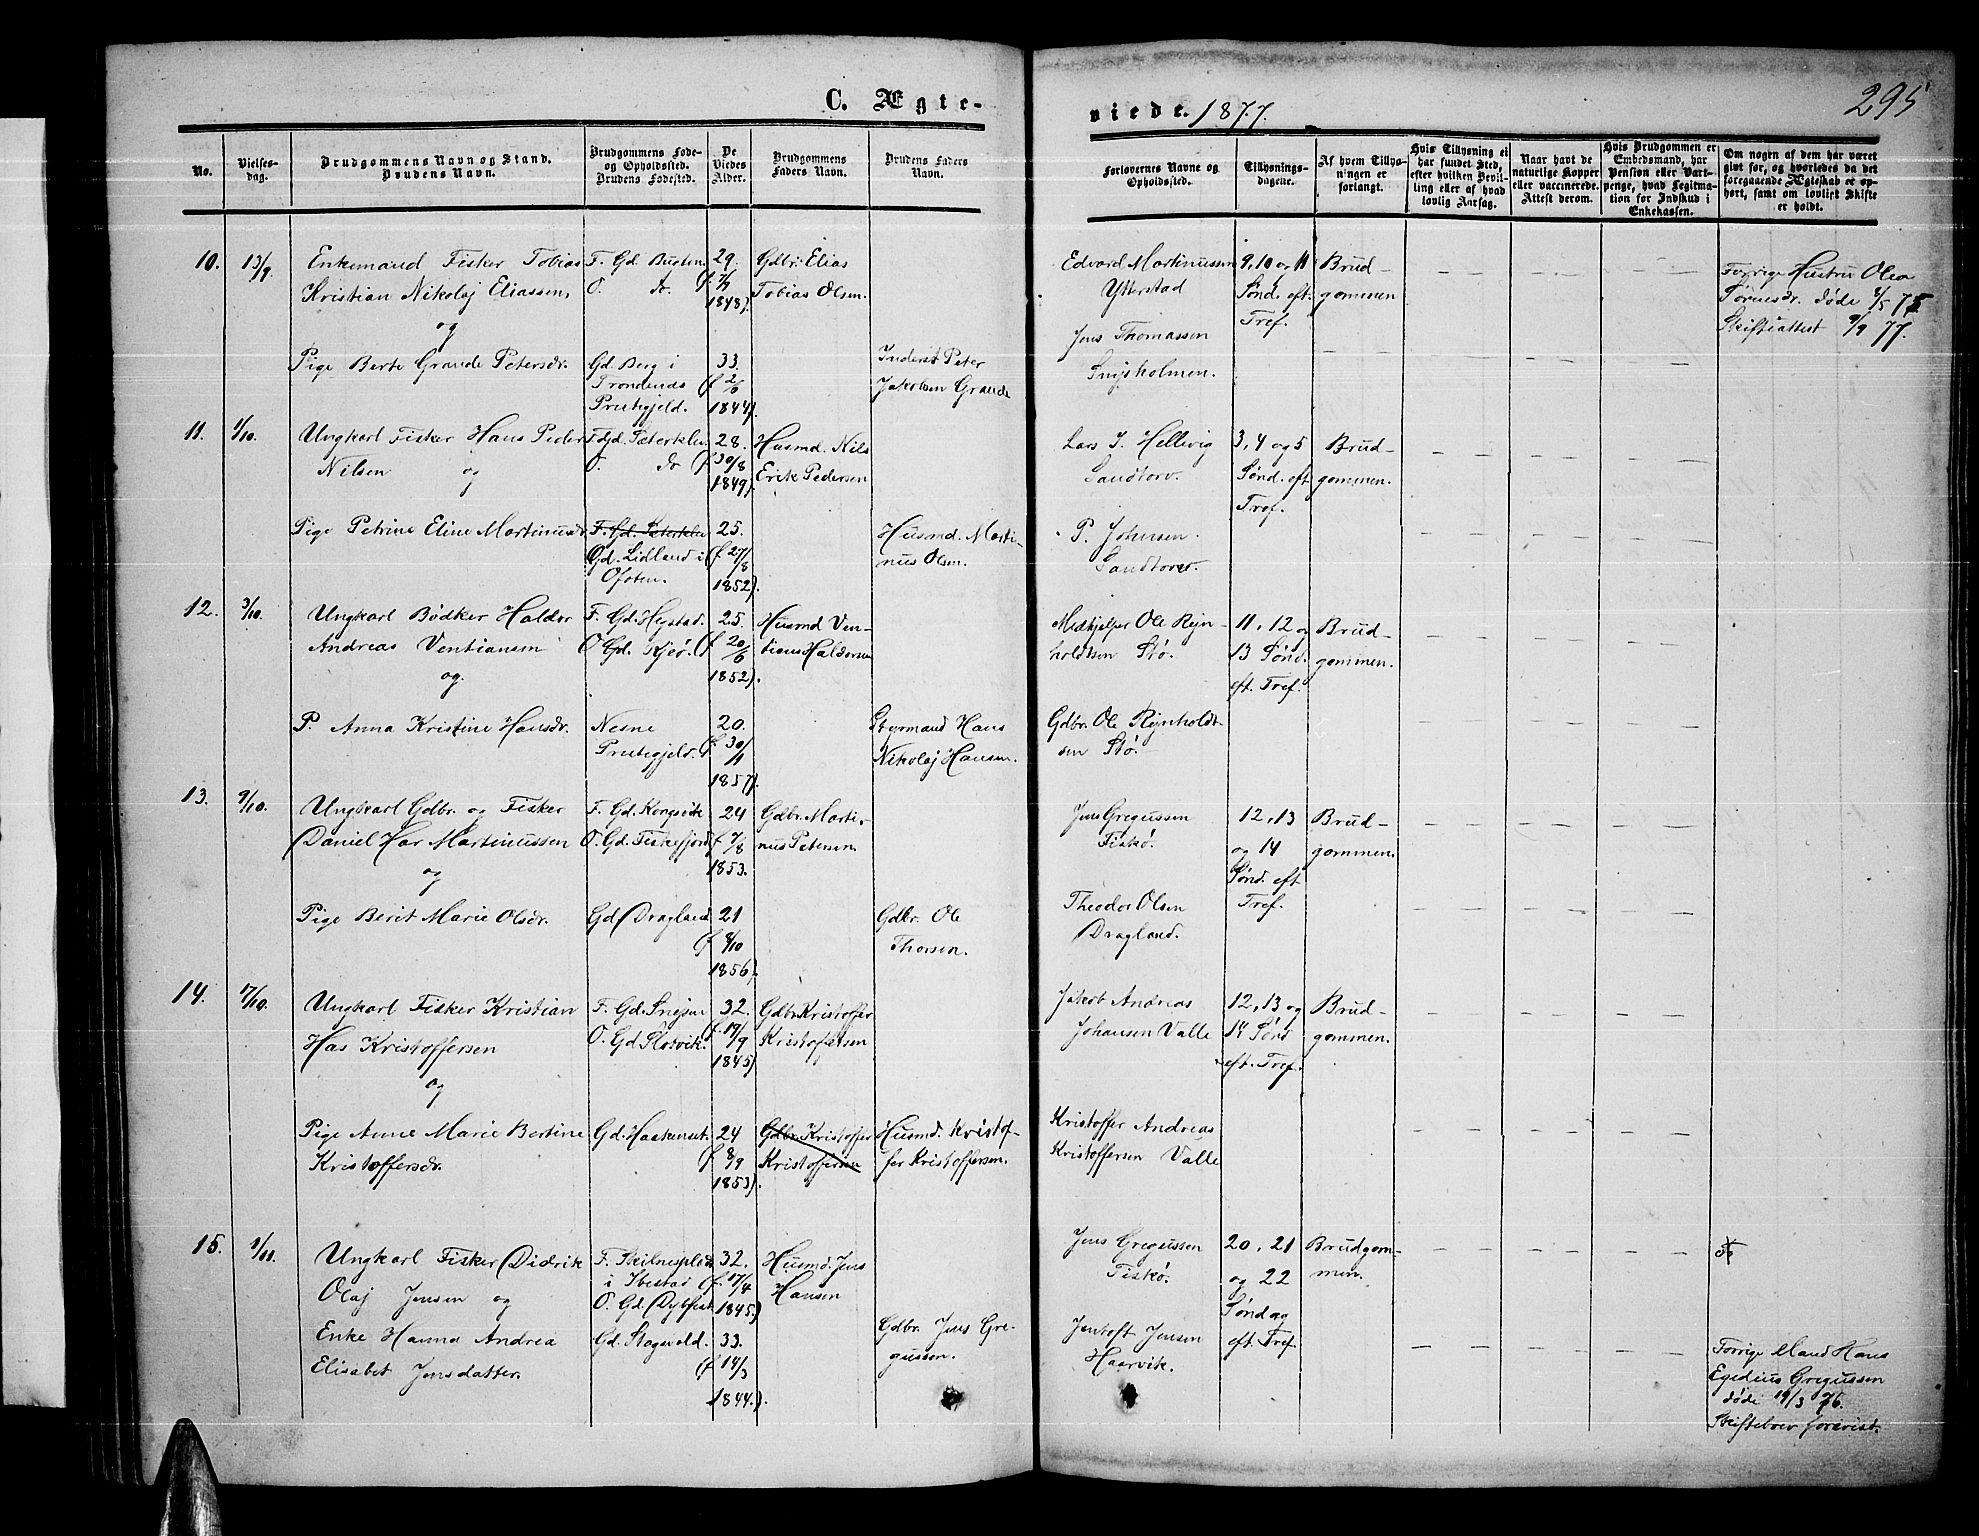 C. Ægte-
viede. 1877.
295
No.
Vielses-
dag.
Brudgommens Navn og Stand.
Brudens Navn.
Brudgommens Føde-
og Opholdssted.
Brudens Fødested.
De
Viedes
Alder.
Brudgommens
Faders Navn.
Brudens Faders
Navn.
Forlovernes Navne og
Opholdssted.
Tillysnings-
dagene.
Af hvem Tillys-
ningen er
forlangt.
Hvis Tillysning ei
har fundet Sted,
efter hvilken Bevil-
ling eller af hvad
lovlig Aarsag.
Naar havt de
naturlige Kopper
eller vaccinerede.
Attest derom.
Hvis Brudgommen er
Embedsmand, har
Pension eller Vart-
penge, hvad Legitima-
tion for Indskud i
Enkekassen.
Om nogen af dem har været
gift før, og hvorledes da det
foregaaende Ægteskab er op-
hørt, samt om lovligt Skifte
er holdt.
10.
13/9
Enkemand Fisker Tobias
Kristian Nikolaj Eliassen,
og
F. Gd. Busten
O. do.
29.
(f. 7/7
1848).
Gdbr. Elias
Tobias Olsen.
Edvard Martinussen
Ytterstad
9, 10 og 11
Sønd. eft.
Tref.
Brud-
gommen
Forrige Hustru Olea
død 2/5 75
Skifteattest 9/9 77.
Pige Berte Grande Petersdr.
Gd. Berg i
Trondenes
Prestegjeld.
33.
(f. 2/6
1844).
Inderst Peter
Jakobsen Grande
Jens Thomassen
11.
1/10.
Ungkarl Fisker Hans Peder
Nilsen og
O. do
28.
(f. 30/8
1849).
Husmd. Nils
Erik Pedersen
Lars J. Hellevig
Sandtorv.
3, 4 og 5
Sønd. eft
Tref.
Brud-
gommen.
Pige Petrine Eline Martinusdr.
Gd. Lidland i
Ofoten.
25.
(f. 27/8
1852).
Husmd. Marti-
nus Olsen.
P. Johnsen.
Sandtorv.
12.
3/10.
Ungkarl Bødker Haldor
Andreas Ventiansen
og.
F. Gd. Hystad.
O Gd. Kjør.
25.
(f. 20/6
1852).
Husmd Ven-
tians Haldorsen
Medhjelper Ole Rejn-
holdtsen Stø.
11, 12 og
13 Sønd.
eft. Tref.
Brud-
gommen.
P. Anna Kristine Hansdr.
Nesne
Prestegjeld.
20.
(f. 30/1
1857).
Styrmand Hans
Nikolaj Hansen.
Gdbr. Ole Rejnholdt-
sen Stø.
13.
9/10.
Ungkarl Gdbr. og Fisker
Daniel Har Martinussen
og
F. Gd. Kongsvik
O. Gd. Fiskefjord
24
(f. 7/8
1853.
Gdbr. Marti-
nus Petersen.
Jens Gregussen
Fiskø.
12, 13
og 14
Sønd. eft
Tref.
Brud-
gommen.
Pige Berit Marie Olsdr.
Gd Dragland
21
(f. 9/10
1856).
Gdbr. Ole
Thorsen.
Theodor Olsen
Dragland.
14.
17/10.
Ungkarl Fisker Kristian
Has Kristoffersen
og
F. Gd. Snejsen
O. Gd. Slotvik.
32.
(f. 17/9
1845)
Gdbr. Kristoffer
Kristoffersen
Jakob Andreas
Johansen Valle
12, 13 og
14 Sønd
eft. Tref.
Brud-
gommen.
Pige Anne Marie Bertine
Kristoffersdr.
Gd. Haakenset.
24
(f. 8/9
1853).
Gdbr. Kristoffer
Kristoffersen
Husmd. Kristof-
fer Kristoffersen.
Kristoffer Andreas
Kristoffersen Valle
15.
1/11.
Ungkarl Fisker Didrik
Olaj Jensen og
i Ibestad
32.
(f. 17/4
1845.)
Husmd. Jens
Hansen
Jens Gregussen
Fiskø.
20, 21
og 22
Søndag
eft. Tref.
Brudgom-
men.
Enke Hanna Andrea
Elisabet Jensdatter.
33.
(f. 14/3
1844.).
Gdbr. Jens Gre-
gussen.
Jentoft Jensen
Haarvik.
Forrige Mand Hans
Egedius Gregussen
døde 19/3 76.
Skiftebrev forevist.